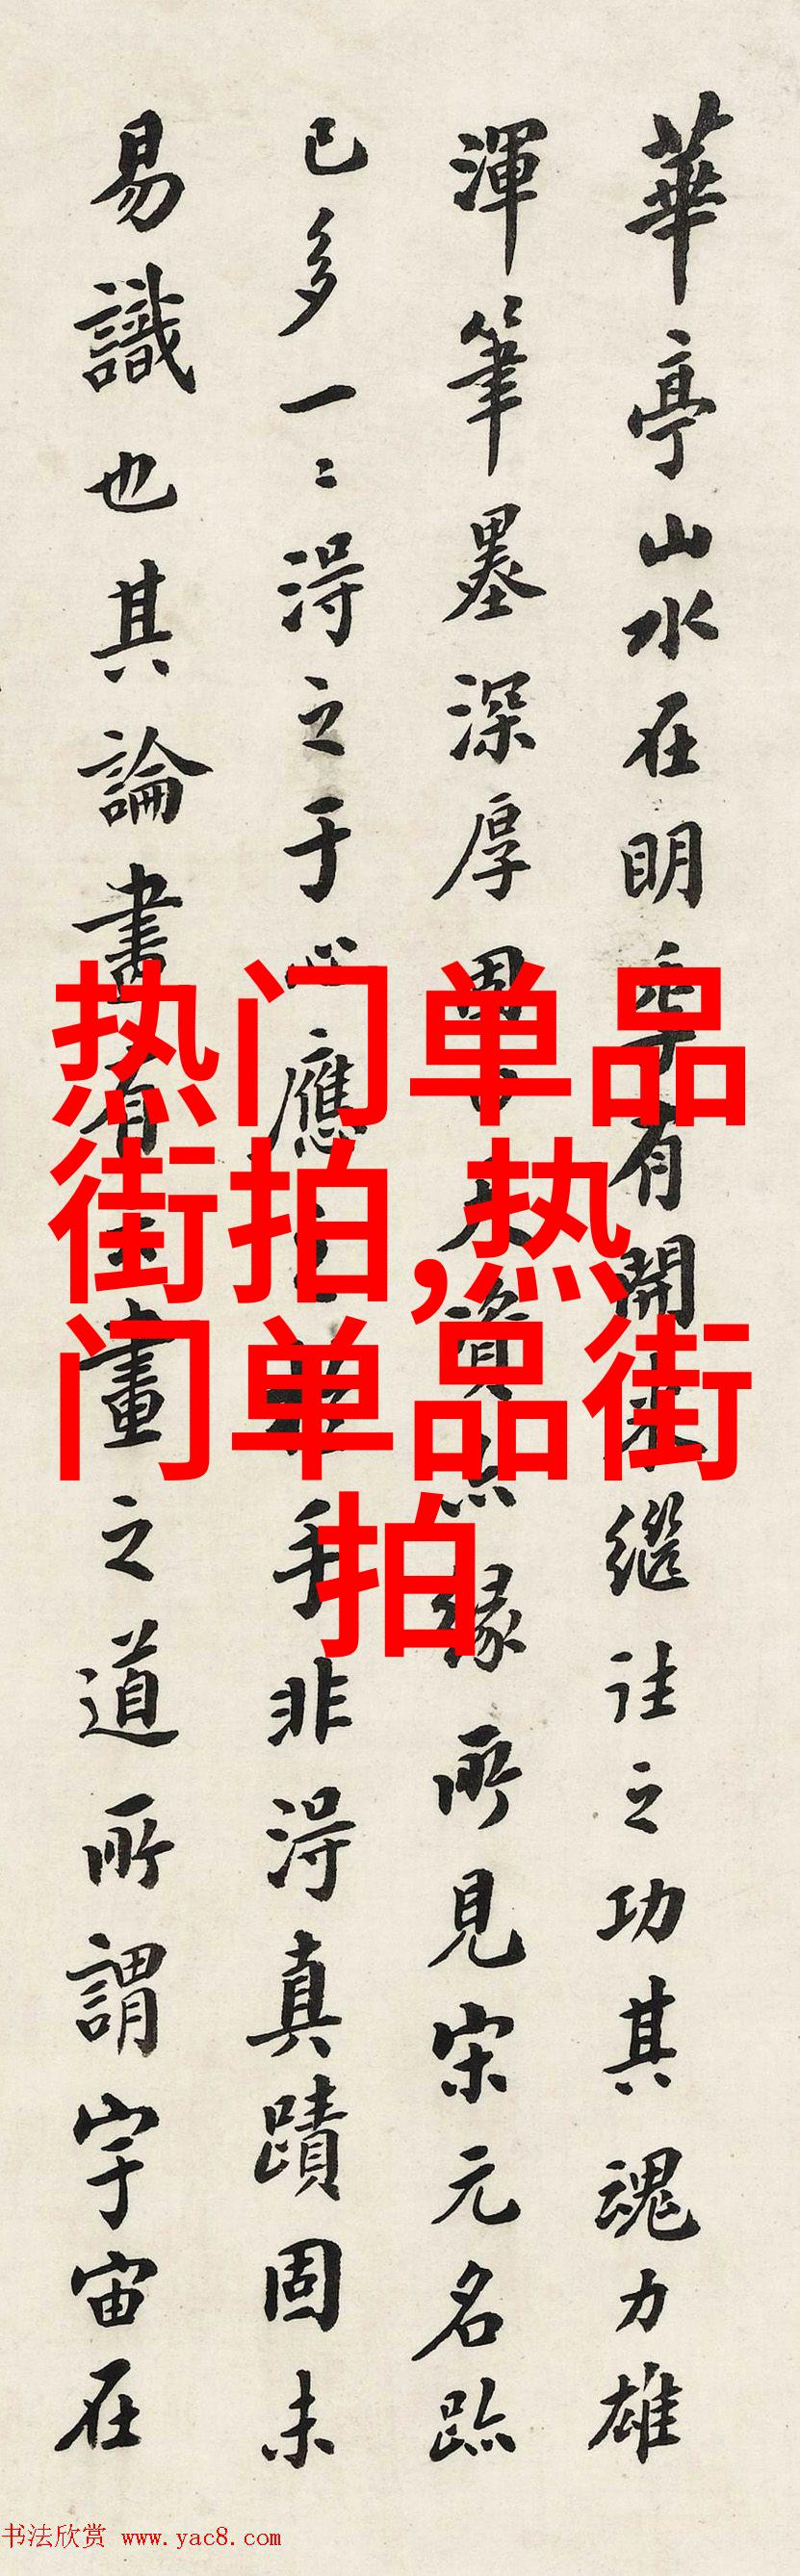 華亭山水在明季有開来継往之功其魂力雄
渾筆墨深厚固天資点縁所見宋元名跡
已多一二淂之于心應之手非淂真蹟固未
易識也其論畫有畫之道所謂宇宙在
热门单品
街拍,热
门单品街
拍
书法欣赏 www.yac8.com